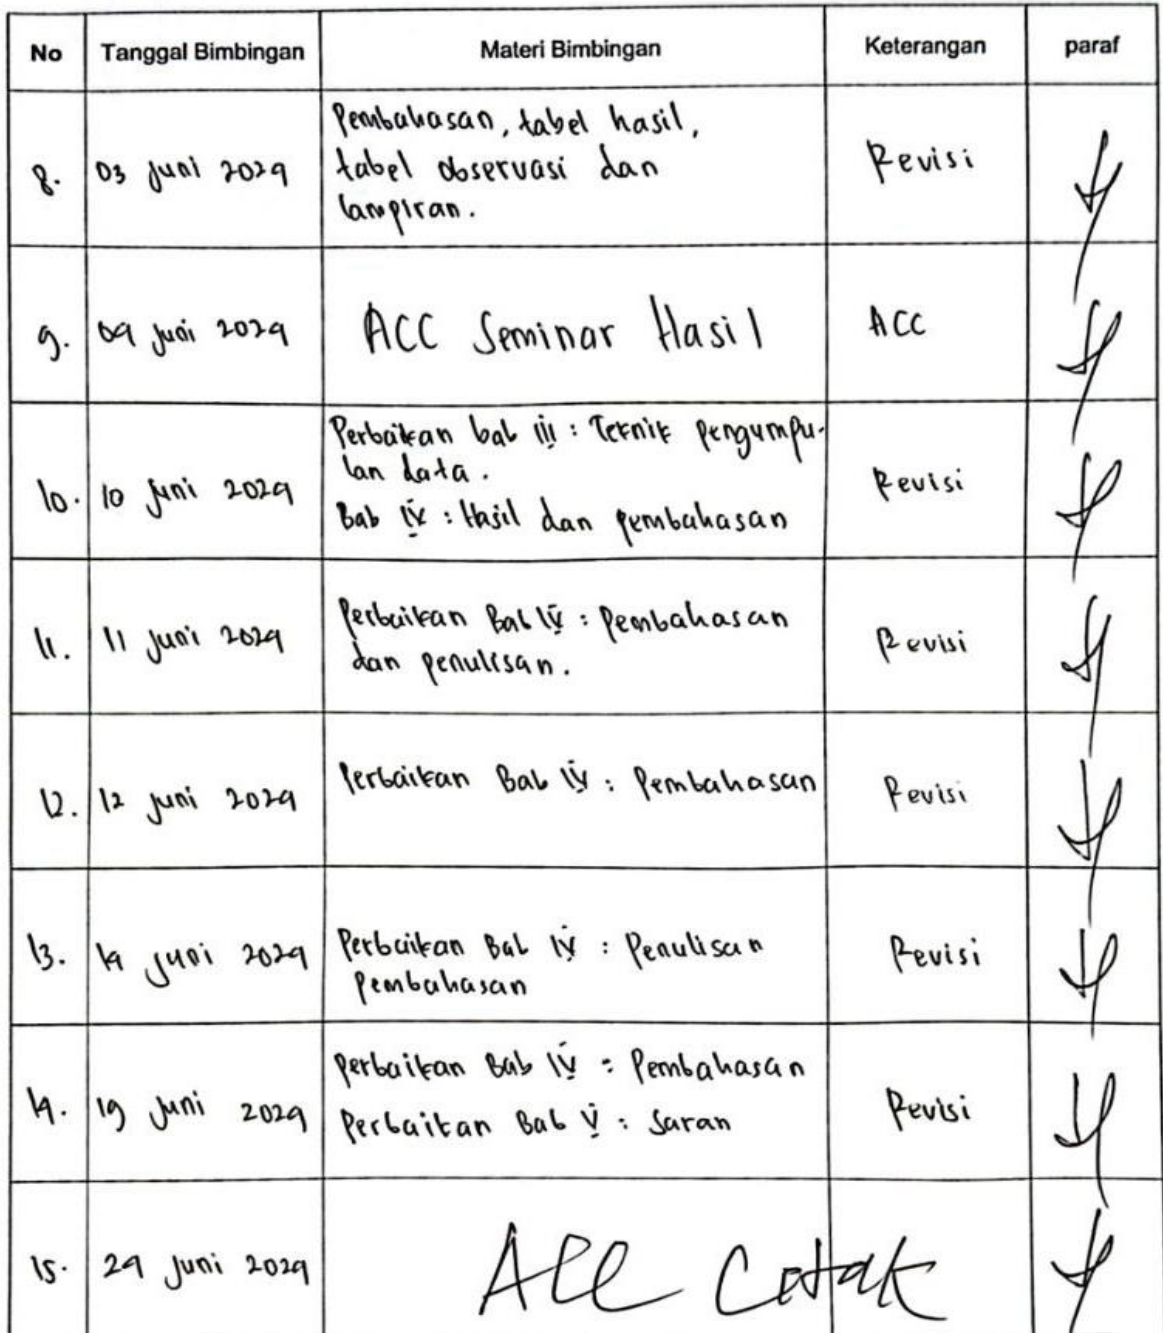 No Tanggal Bimbingan Materi Bimbingan Keterangan paraf
8. 03 Juni 2024 Pembahasan, tabel hasil, Revisi
tabel observasi dan
lampiran.
9. 04 Juni 2024 ACC Seminar Hasil ACC
10. 10 Juni 2024 Perbaikan bab III : Teknik pengumpu- Revisi
lan data.
Bab IV : Hasil dan pembahasan
11. 11 Juni 2024 Perbaikan Bab IV : Pembahasan Revisi
dan penulisan.
12. 12 Juni 2024 Perbaikan Bab IV : Pembahasan Revisi
13. 14 Juni 2024 Perbaikan Bab IV : Penulisan Revisi
Pembahasan
14. 19 Juni 2024 Perbaikan Bab IV : Pembahasan Revisi
Perbaikan Bab V : Saran
15. 24 Juni 2024 ACC Cetak